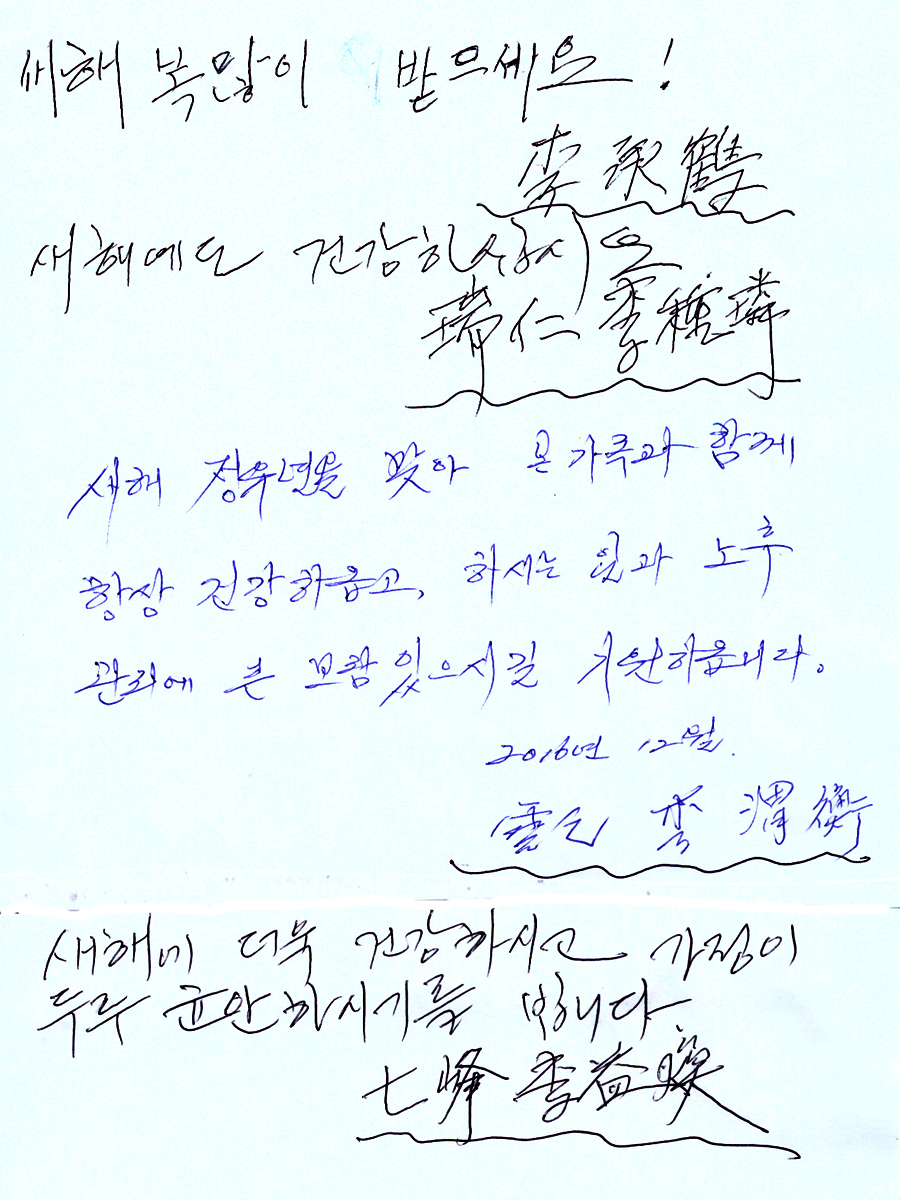 새해 복많이 받으세요!
李 鶴
새해에도 건강하십시요
瑞仁 李種璘
새해 정유년을 맞아 온가족과 함께
항상 건강하옵고, 하시는 일과 노후
관리에 큰 보람있으시길 기원하옵니다.
2016년 12월.
李 渭衡
새해에 더욱 건강하시고 가정이
두루 균안하시기를 빕니다.
七峰 李益